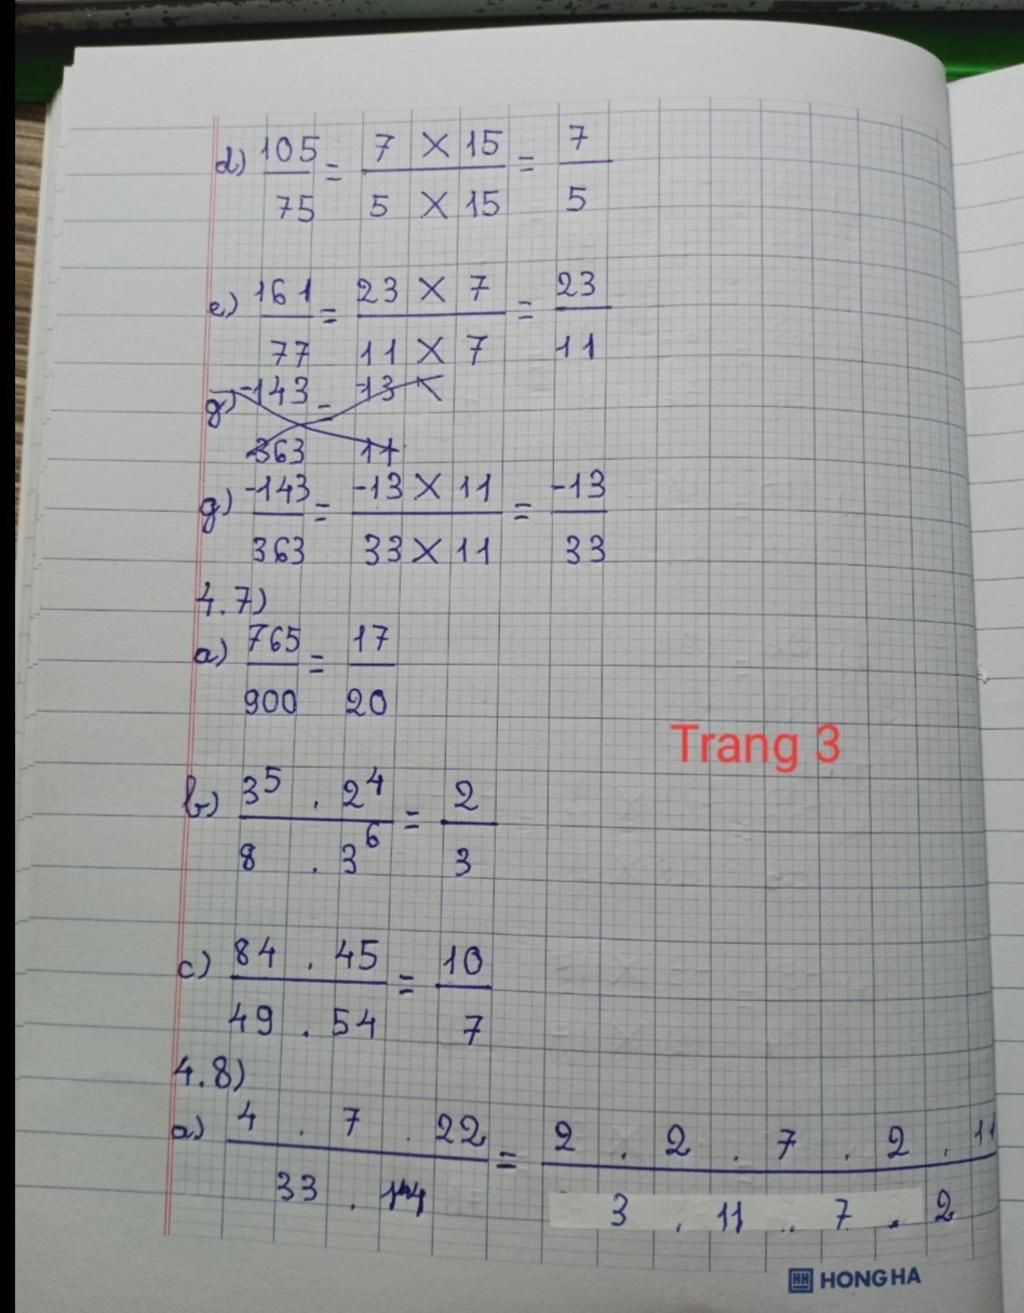 d) 105/75 = 7 X 15/5 X 15 = 7/5
e) 161/77 = 23 X 7/11 X 7 = 23/11
g) -143/363 = -13 X/11
g) -143/363 = -13 X 11/33 X 11 = -13/33
4.7)
a) 765/900 = 17/20
Trang 3
b) 3⁵ . 2⁴/8 . 3⁶ = 2/3
c) 84 . 45/49 . 54 = 10/7
4.8)
a) 4 . 7 . 22/33 . 14 = 2 . 2 . 7 . 2 . 11/3 . 11 . 7 . 2
HH HONG HA